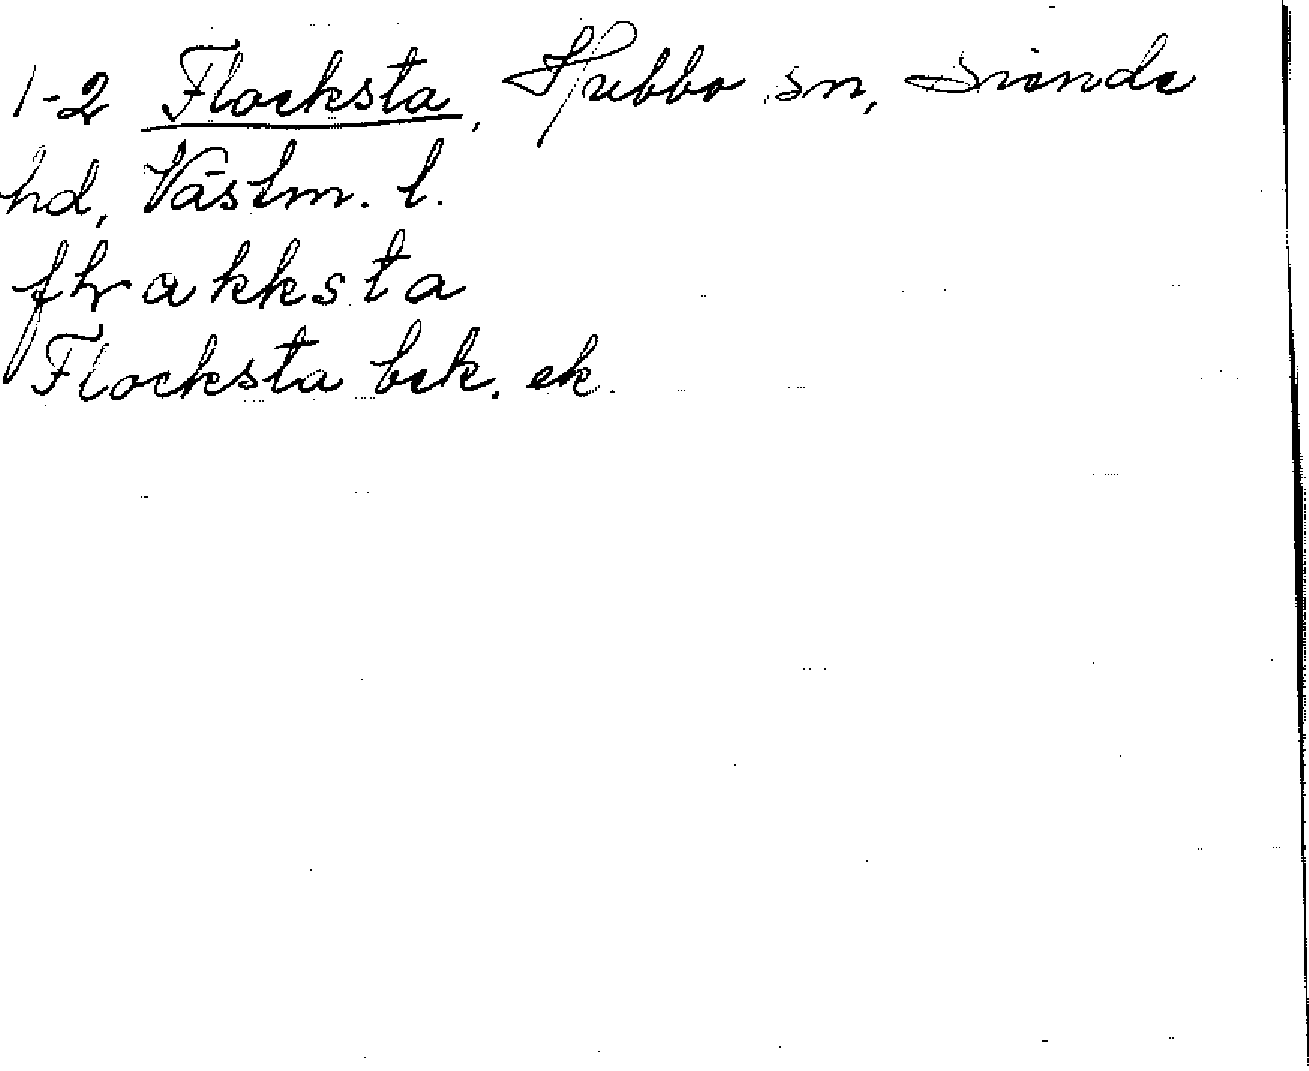 1-2 Flocksta, Hubbo sn, Siende
hd, Västm. l.
flrakksta
Flocksta bek. ek.